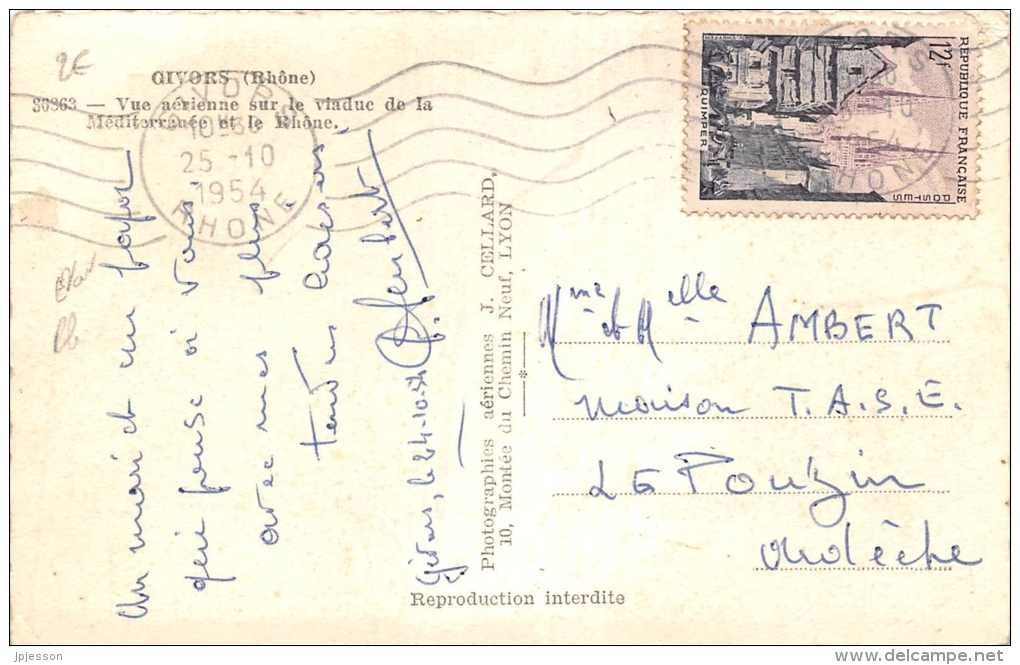 2€
GIVORS (Rhône)
80863 — Vue aérienne sur le viaduc de la
Méditerranée et le Rhône.
GIVORS
10H30
25 - 10
1954
RHONE
Un mari et un papa
qui pense à vous
avec mes plus
tendres baisers
Ambert
Givors, le 24-10-54
Photographies aériennes J. CELLARD,
10, Montée du Chemin Neuf, LYON
Reproduction interdite
REPUBLIQUE FRANÇAISE
12f
POSTES
QUIMPER
-10
1954
RHONE
Mme et Melle
AMBERT
maison T.A.S.E.
LE Pouzin
Ardèche
jpjesson
www.delcampe.net